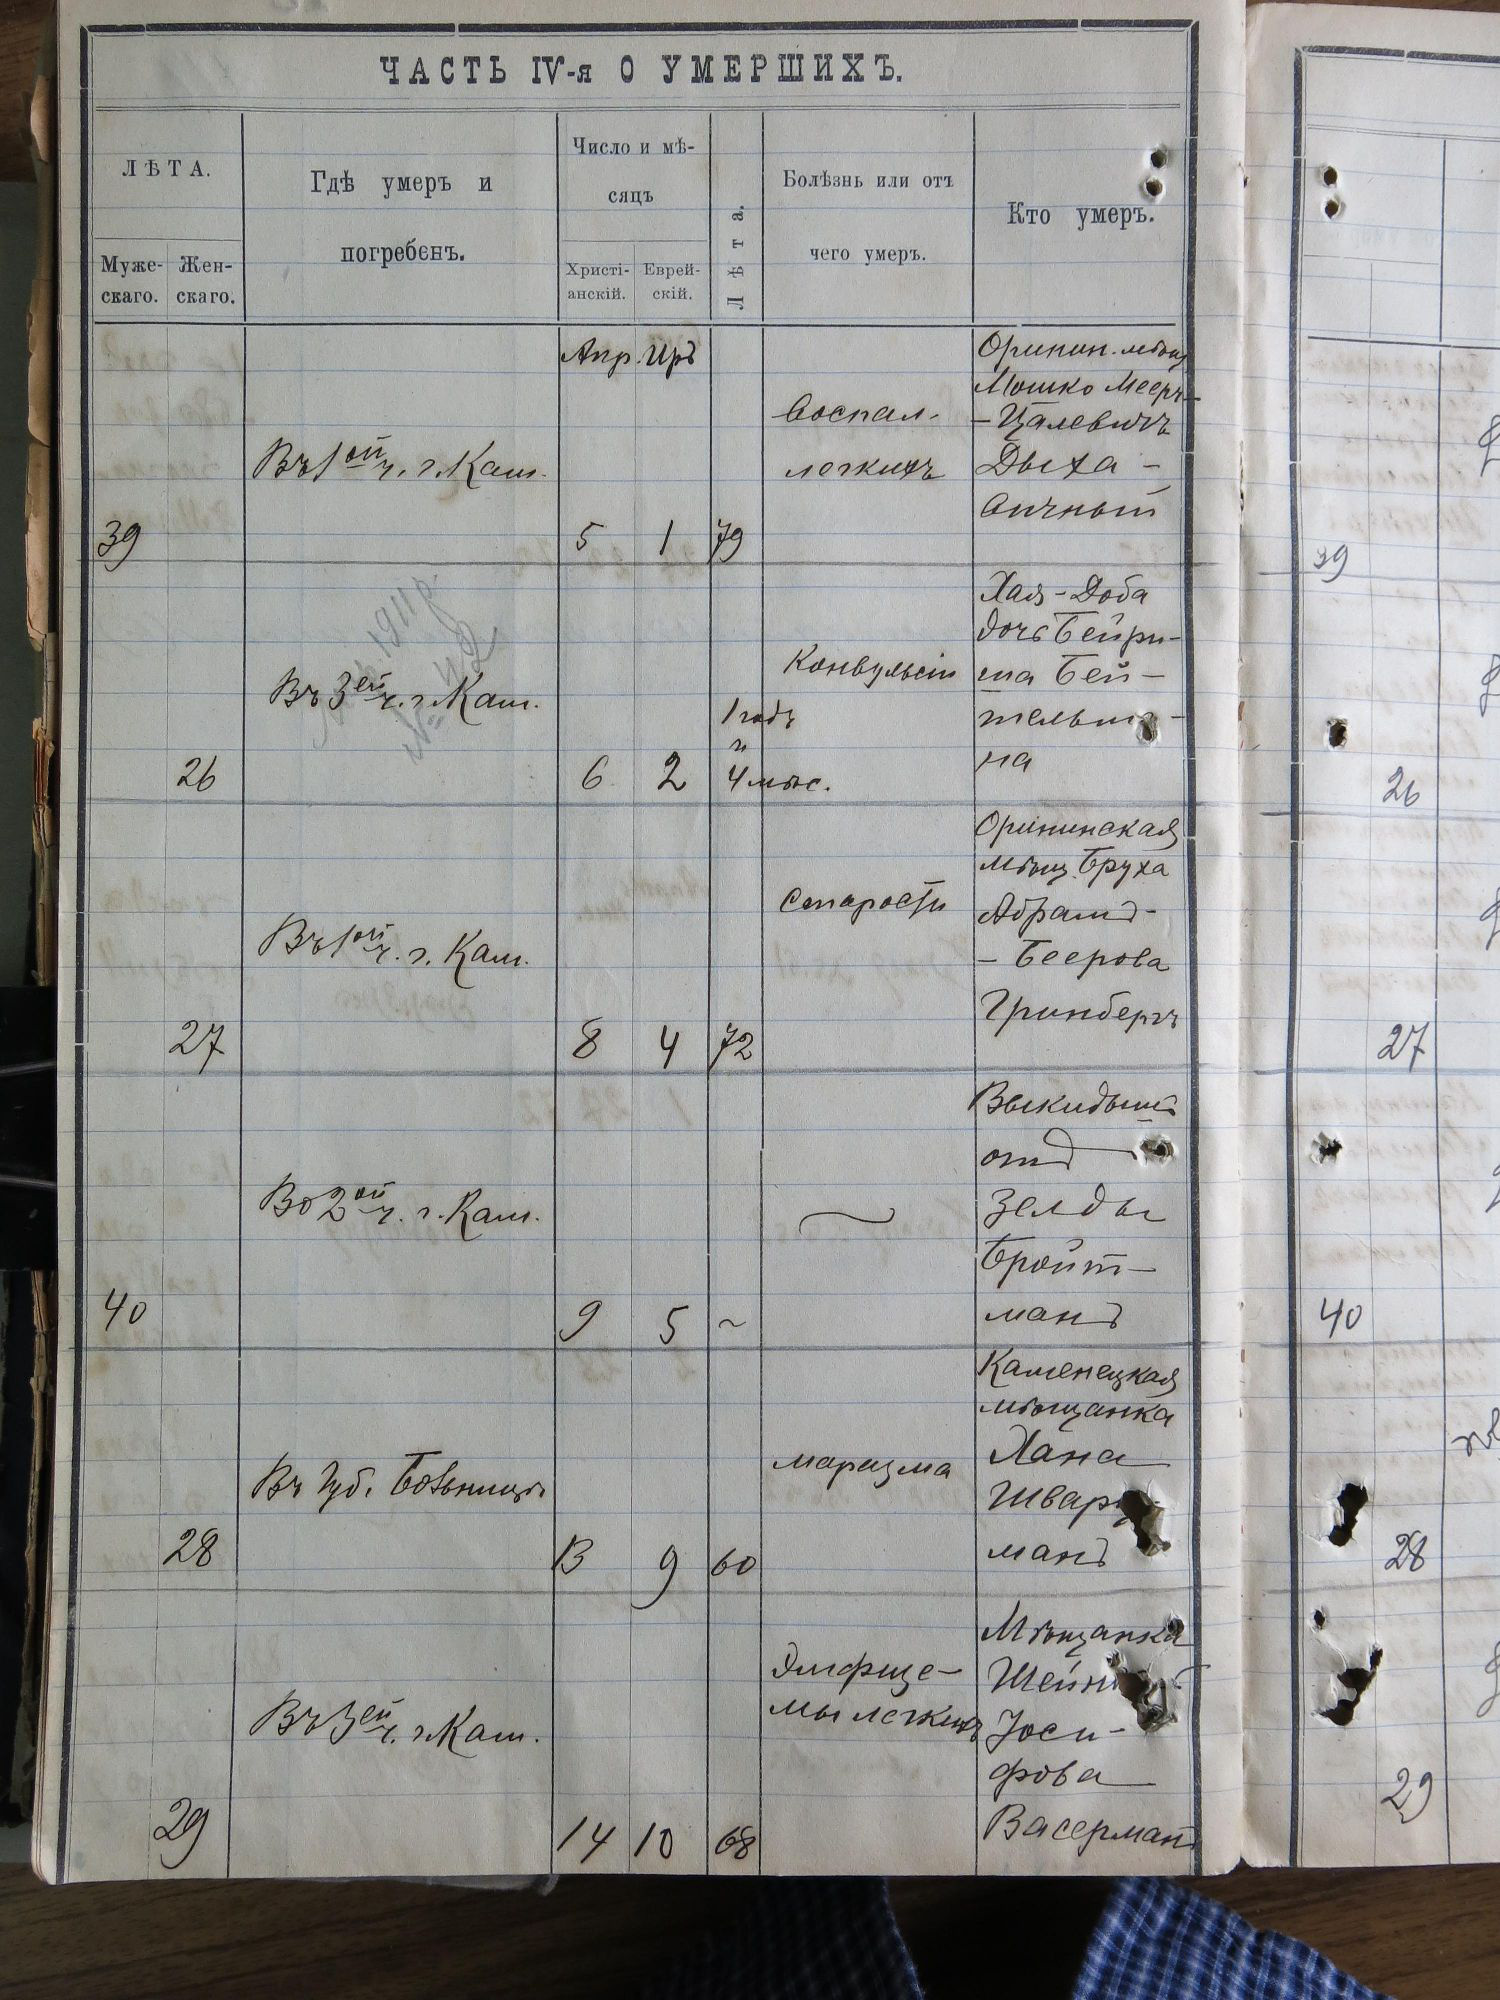 ЧАСТЬ IV-я О УМЕРШИХЪ.
ЛѢТА.
Муже-
скаго.
Жен-
скаго.
Гдѣ умеръ и
погребенъ.
Число и мѣ-
сяцъ
Христі-
анскій.
Еврей-
скій.
Лѣта.
Болѣзнь или отъ
чего умеръ.
Кто умеръ.
Апр. Иръ
39
Въ 1ой ч. г. Кам.
5
1
79
Воспал.
легкихъ
Оринин. мѣщ
Мошко Мееръ-
-Цалевичъ
Дыха-
вичный
26
Въ 3ей ч. г. Кам.
1911 г.
№ 42
6
2
1 годъ
и
4 мѣс.
Конвульсіи
Хая-Доба
дочь Бейри-
ша Бей-
тельш
на
27
Въ 1ой ч. г. Кам.
8
4
72
Старости
Орининская
мѣщ. Бруха
Абрамъ-
-Беерова
Гринбергъ
40
Во 2ой ч. г. Кам.
9
5
~
~
Выкидышъ
отъ
Зелды
Бройт-
манъ
28
Въ Губ. Больницѣ
13
9
60
Маразма
Каменецкая
мѣщанка
Хана
Шварц-
манъ
29
Въ 3ей ч. г. Кам.
14
10
68
Эмфизе-
мы легкихъ
Мѣщанка
Іоси-
фова
Васерманъ
39
26
27
40
28
29